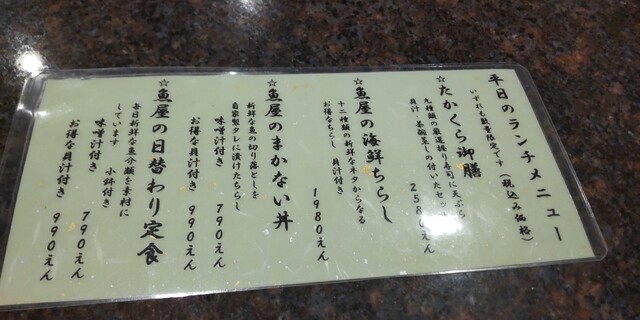 平日のランチメニュー
いずれも数量限定です（税込み価格）
☆たかくら御膳
九種類の厳選握り寿司に天ぷら
貝汁・茶碗蒸しの付いたセット
2580えん
☆魚屋の海鮮ちらし
十二種類の新鮮なネタからなる
お得なちらし 貝汁付き
1980えん
☆魚屋のまかない丼
新鮮な魚の切り落としを
自家製タレに漬けたちらし
味噌汁付き 790えん
お得な貝汁付き 990えん
☆魚屋の日替わり定食
毎日新鮮な魚介類を素材に
しています 小鉢付き
味噌汁付き 790えん
お得な貝汁付き 990えん